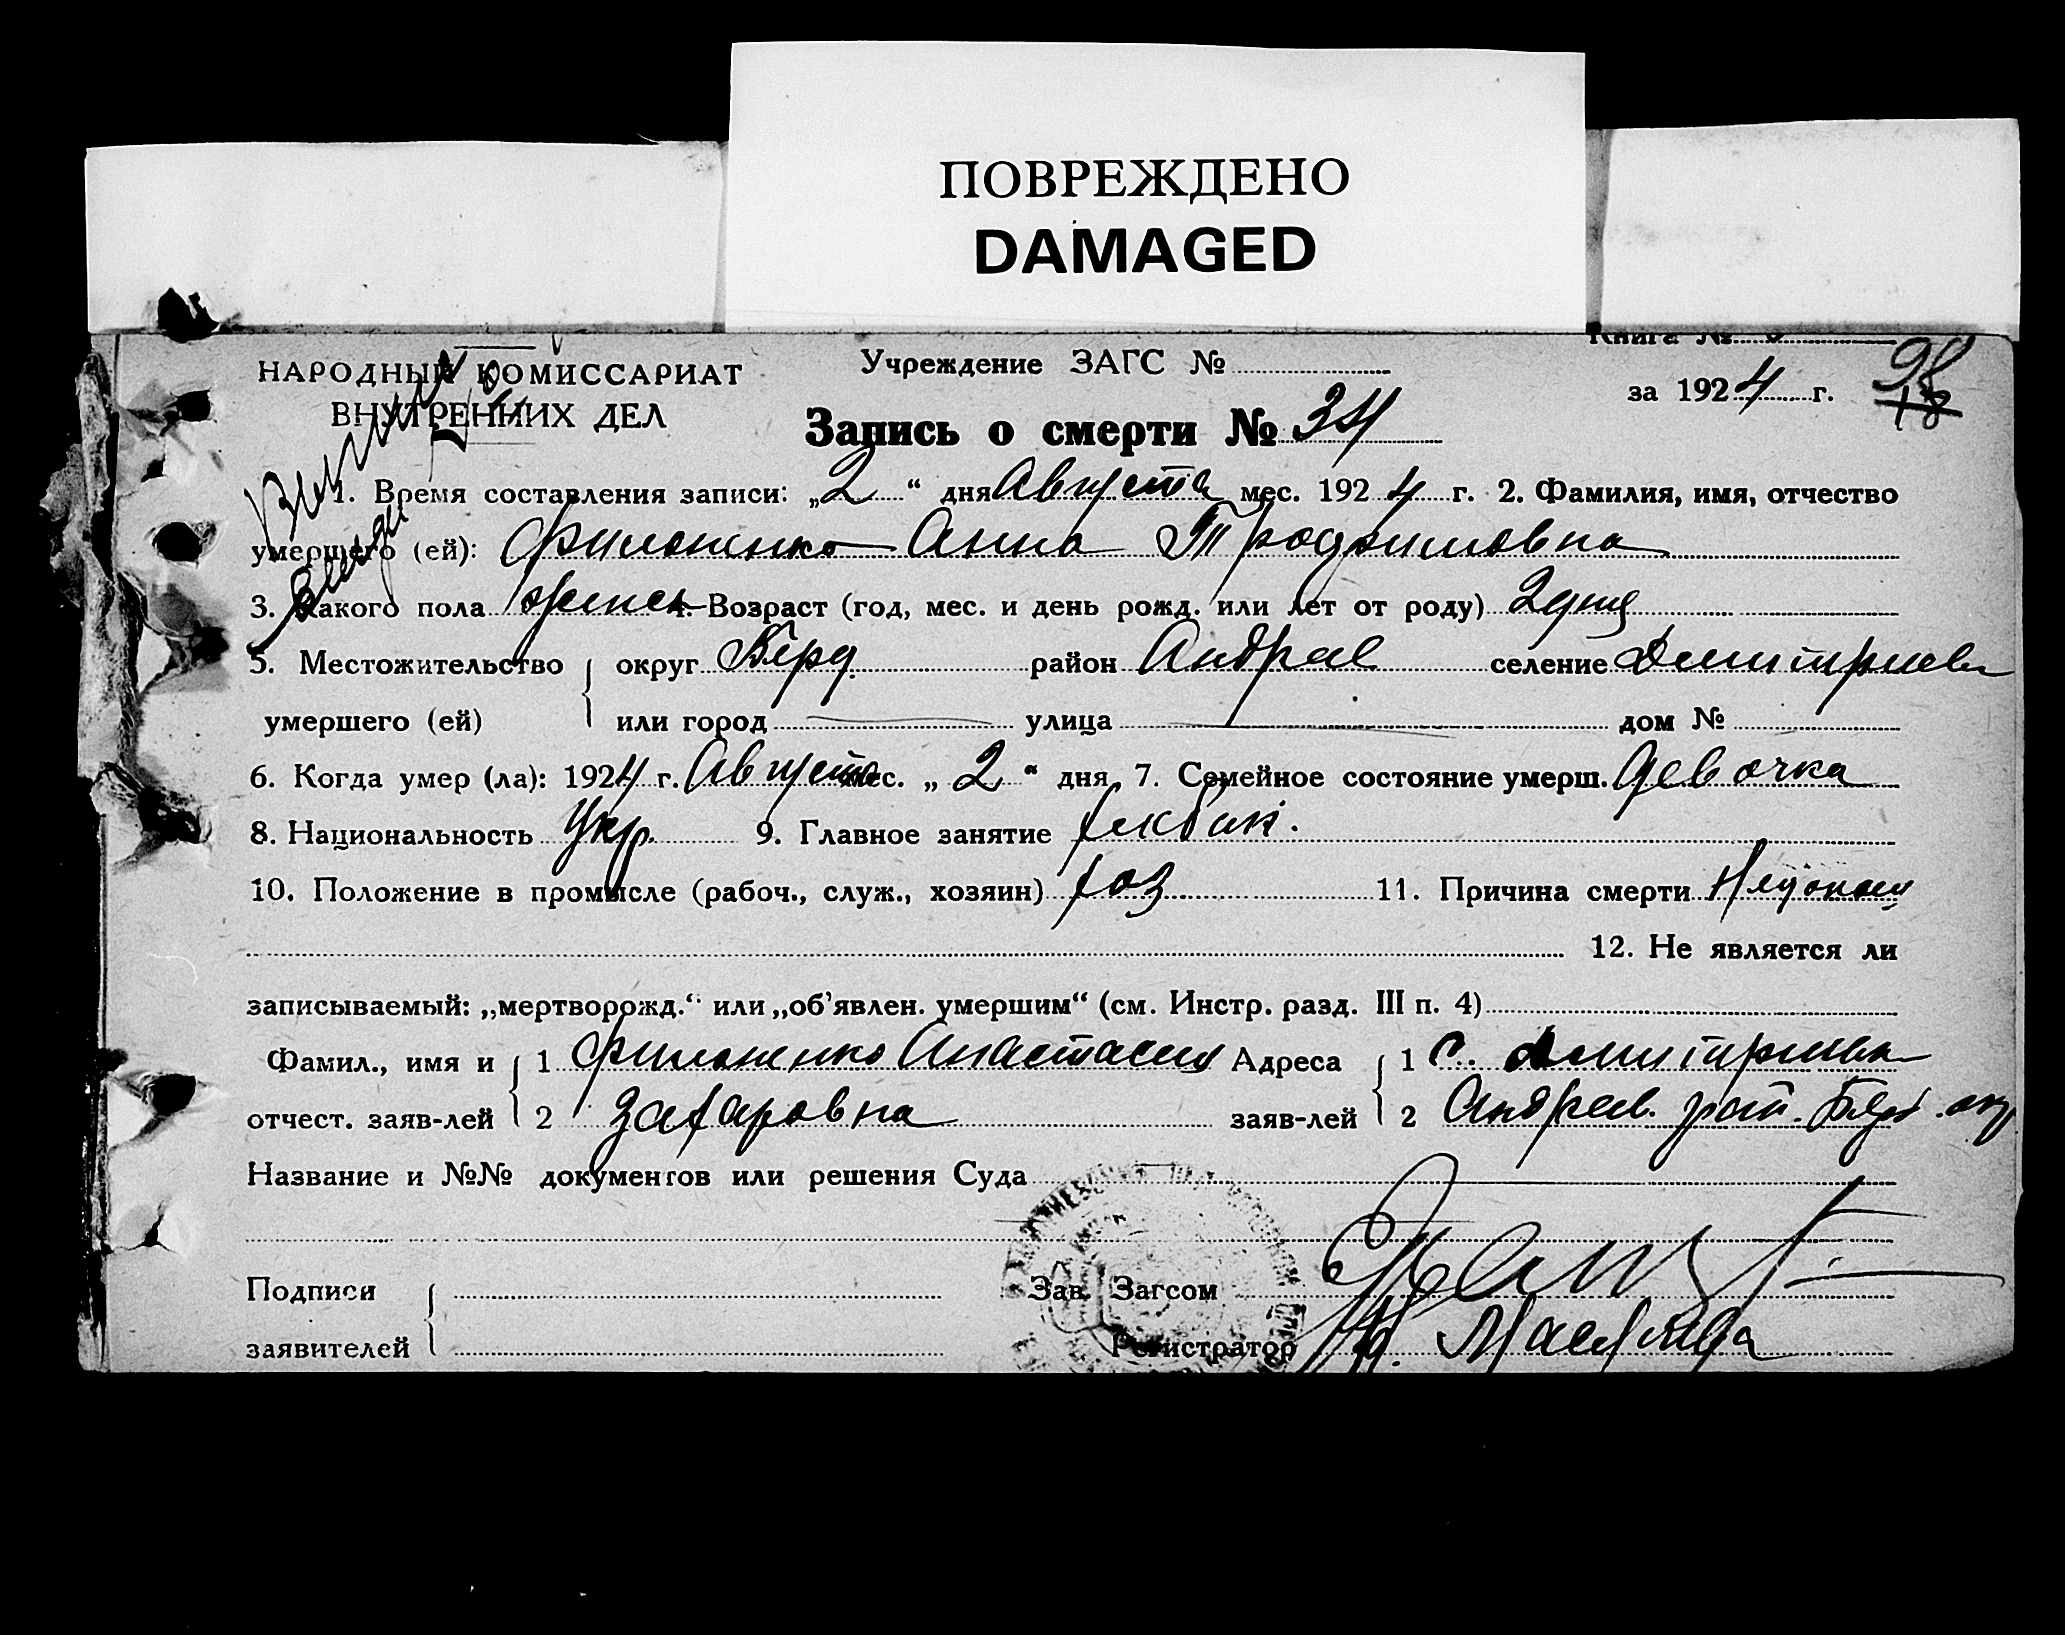 ПОВРЕЖДЕНО
DAMAGED
Книга №
НАРОДНЫЙ КОМИССАРИАТ
ВНУТРЕННИХ ДЕЛ
Учреждение ЗАГС №
за 1924 г. 98
Запись о смерти № 34
1. Время составления записи: „2“ дня Августа мес. 1924 г. 2. Фамилия, имя, отчество
умершего (ей): Филоненко Анна Трофимовна
3. Какого пола женск 4. Возраст (год, мес. и день рожд. или лет от роду)
5. Местожительство округ Берд. район Андрее селение Дмитриевка
умершего (ей) или город улица дом №
6. Когда умер (ла): 1924 г. Августа мес. „2“ дня 7. Семейное состояние умерш. девочка
8. Национальность Укр. 9. Главное занятие
10. Положение в промысле (рабоч., служ., хозяин) хоз 11. Причина смерти
12. Не является ли
записываемый: „мертворожд.“ или „об'явлен. умершим“ (см. Инстр. разд. III п. 4)
Фамил., имя и 1 Филоненко Анастасия Адреса 1 с. Дмитриевка
отчест. заяв-лей 2 Захаровна заяв-лей 2 Андреев. рай. Берд. окр
Название и №№ документов или решения Суда
Подписи Зав. Загсом
заявителей Регистратор